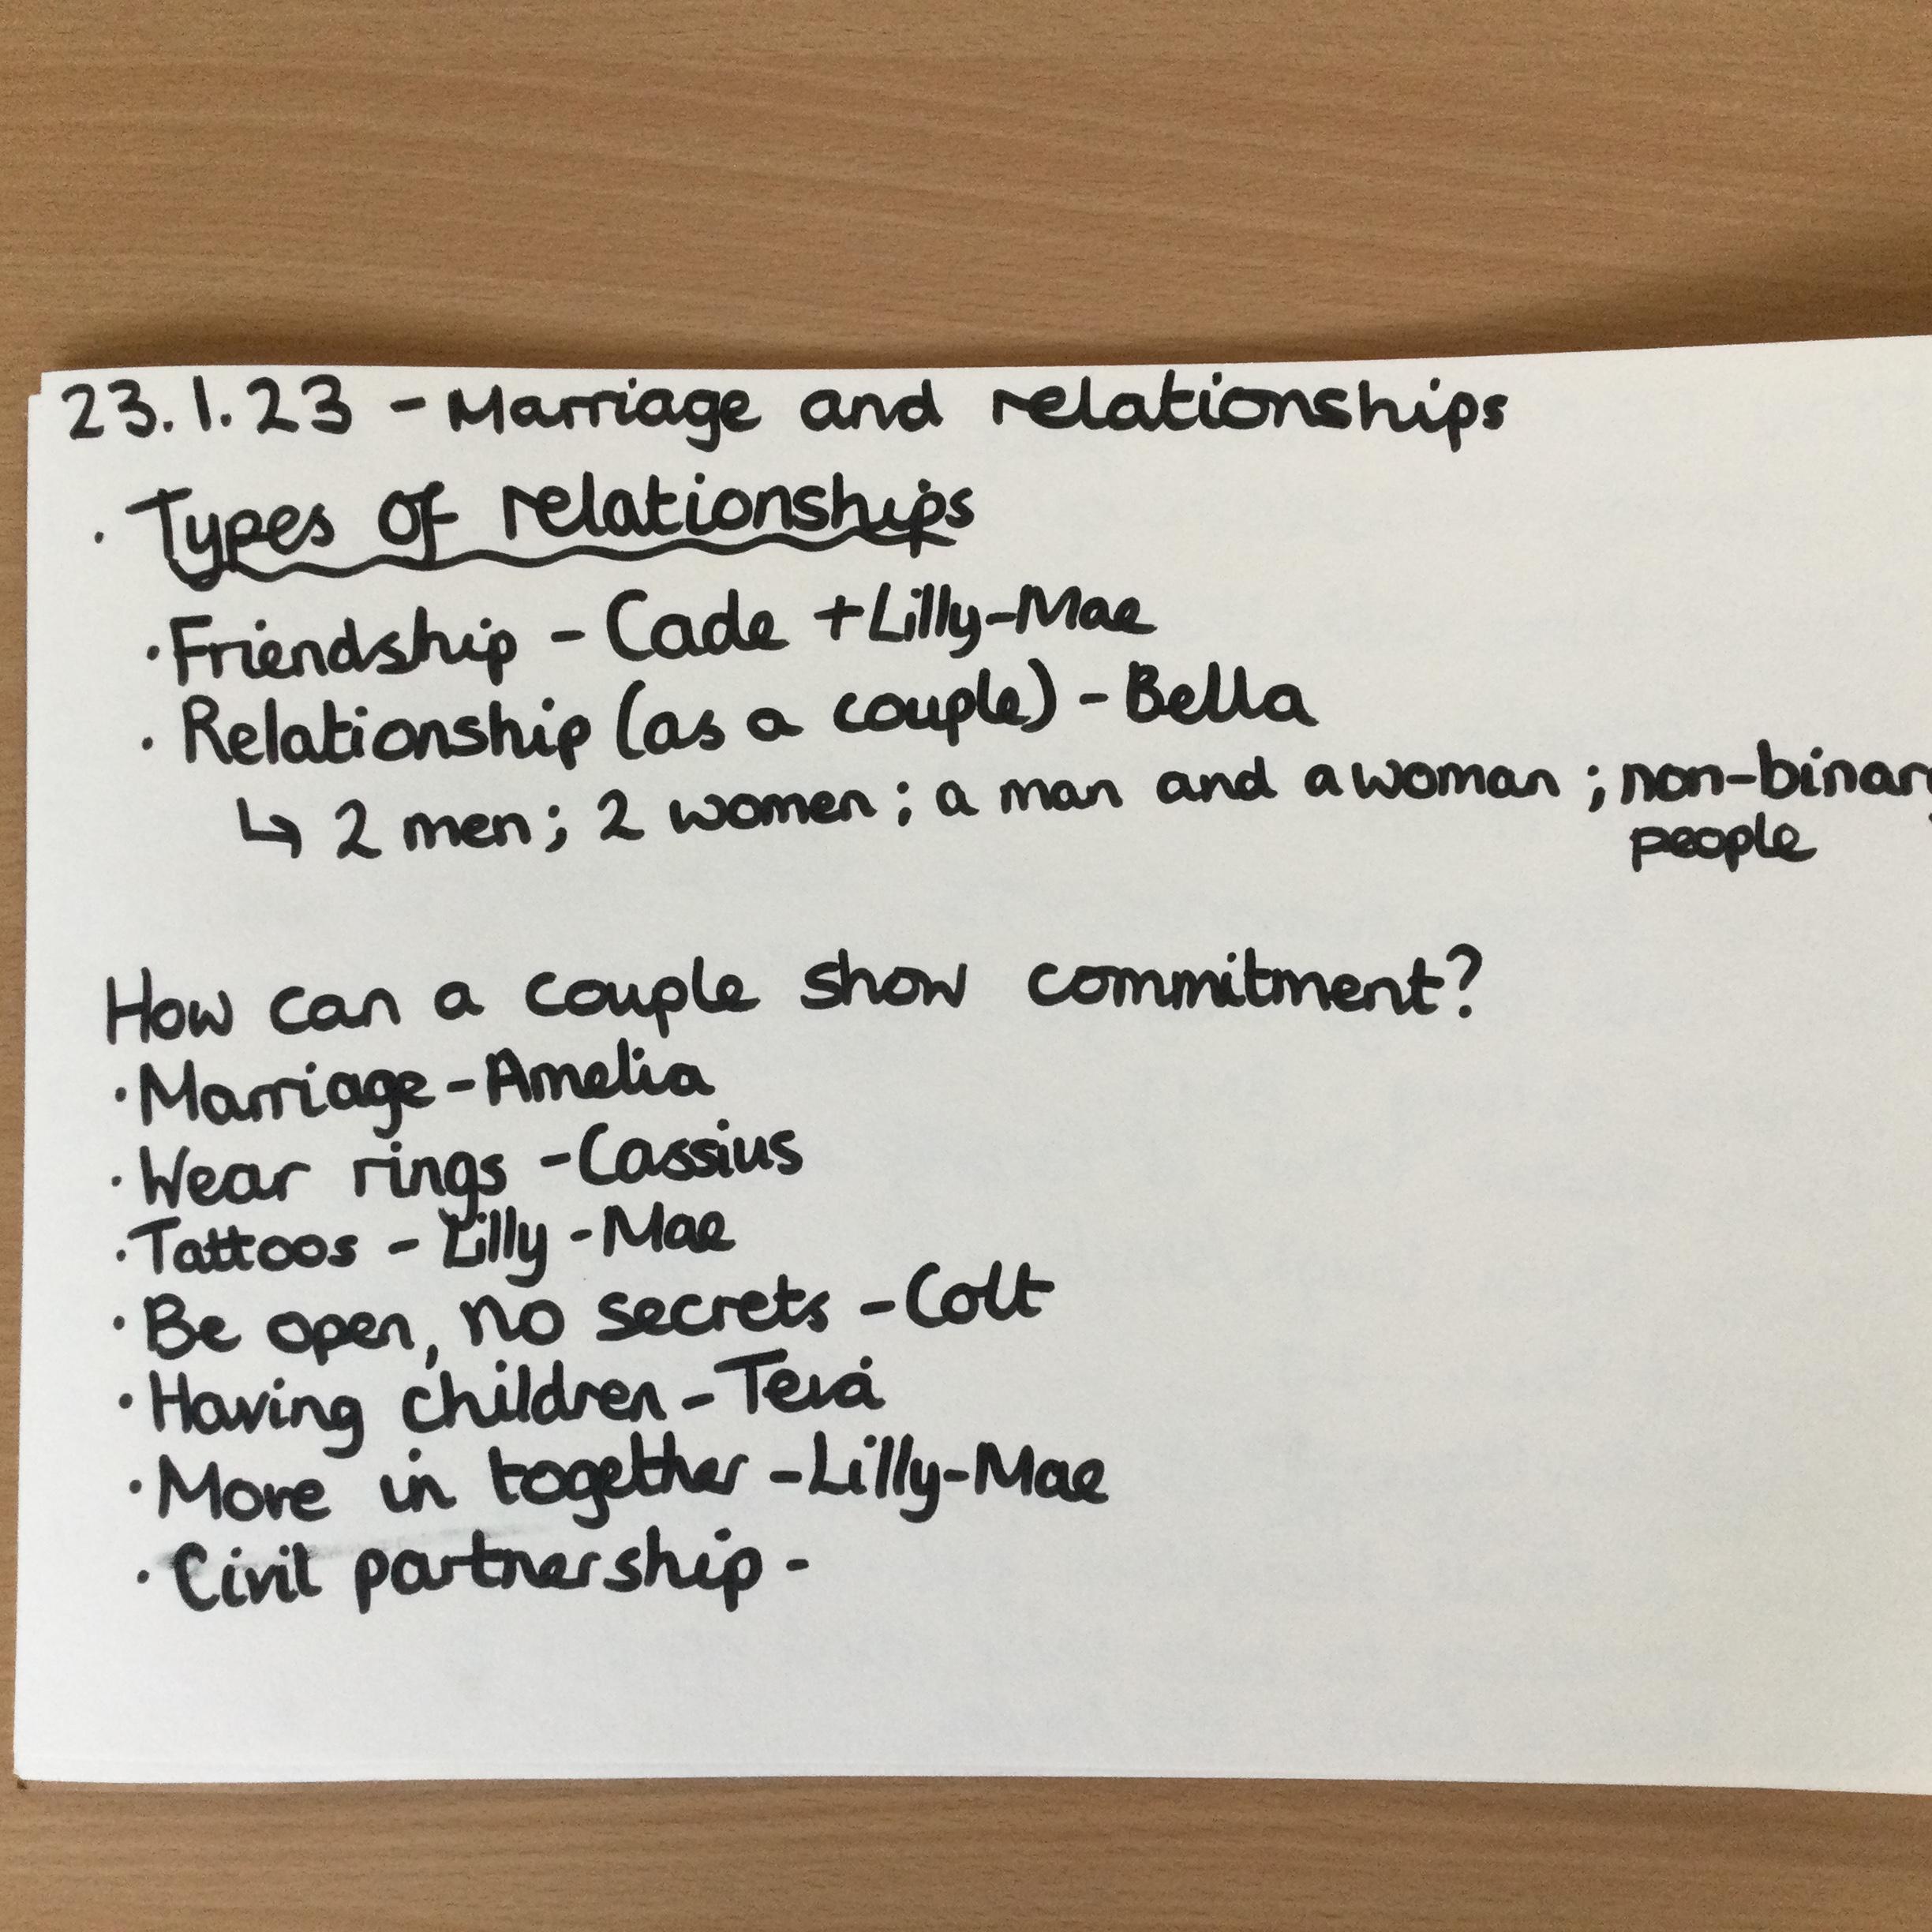 23.1.23 - Marriage and relationships
· Types of relationships
· Friendship - Cade + Lilly-Mae
· Relationship (as a couple) - Bella
↳ 2 men; 2 women; a man and a woman; non-binary
people
How can a couple show commitment?
· Marriage - Amelia
· Wear rings - Cassius
· Tattoos - Lilly-Mae
· Be open, no secrets - Colt
· Having children -
· More in together - Lilly-Mae
· Civil partnership -